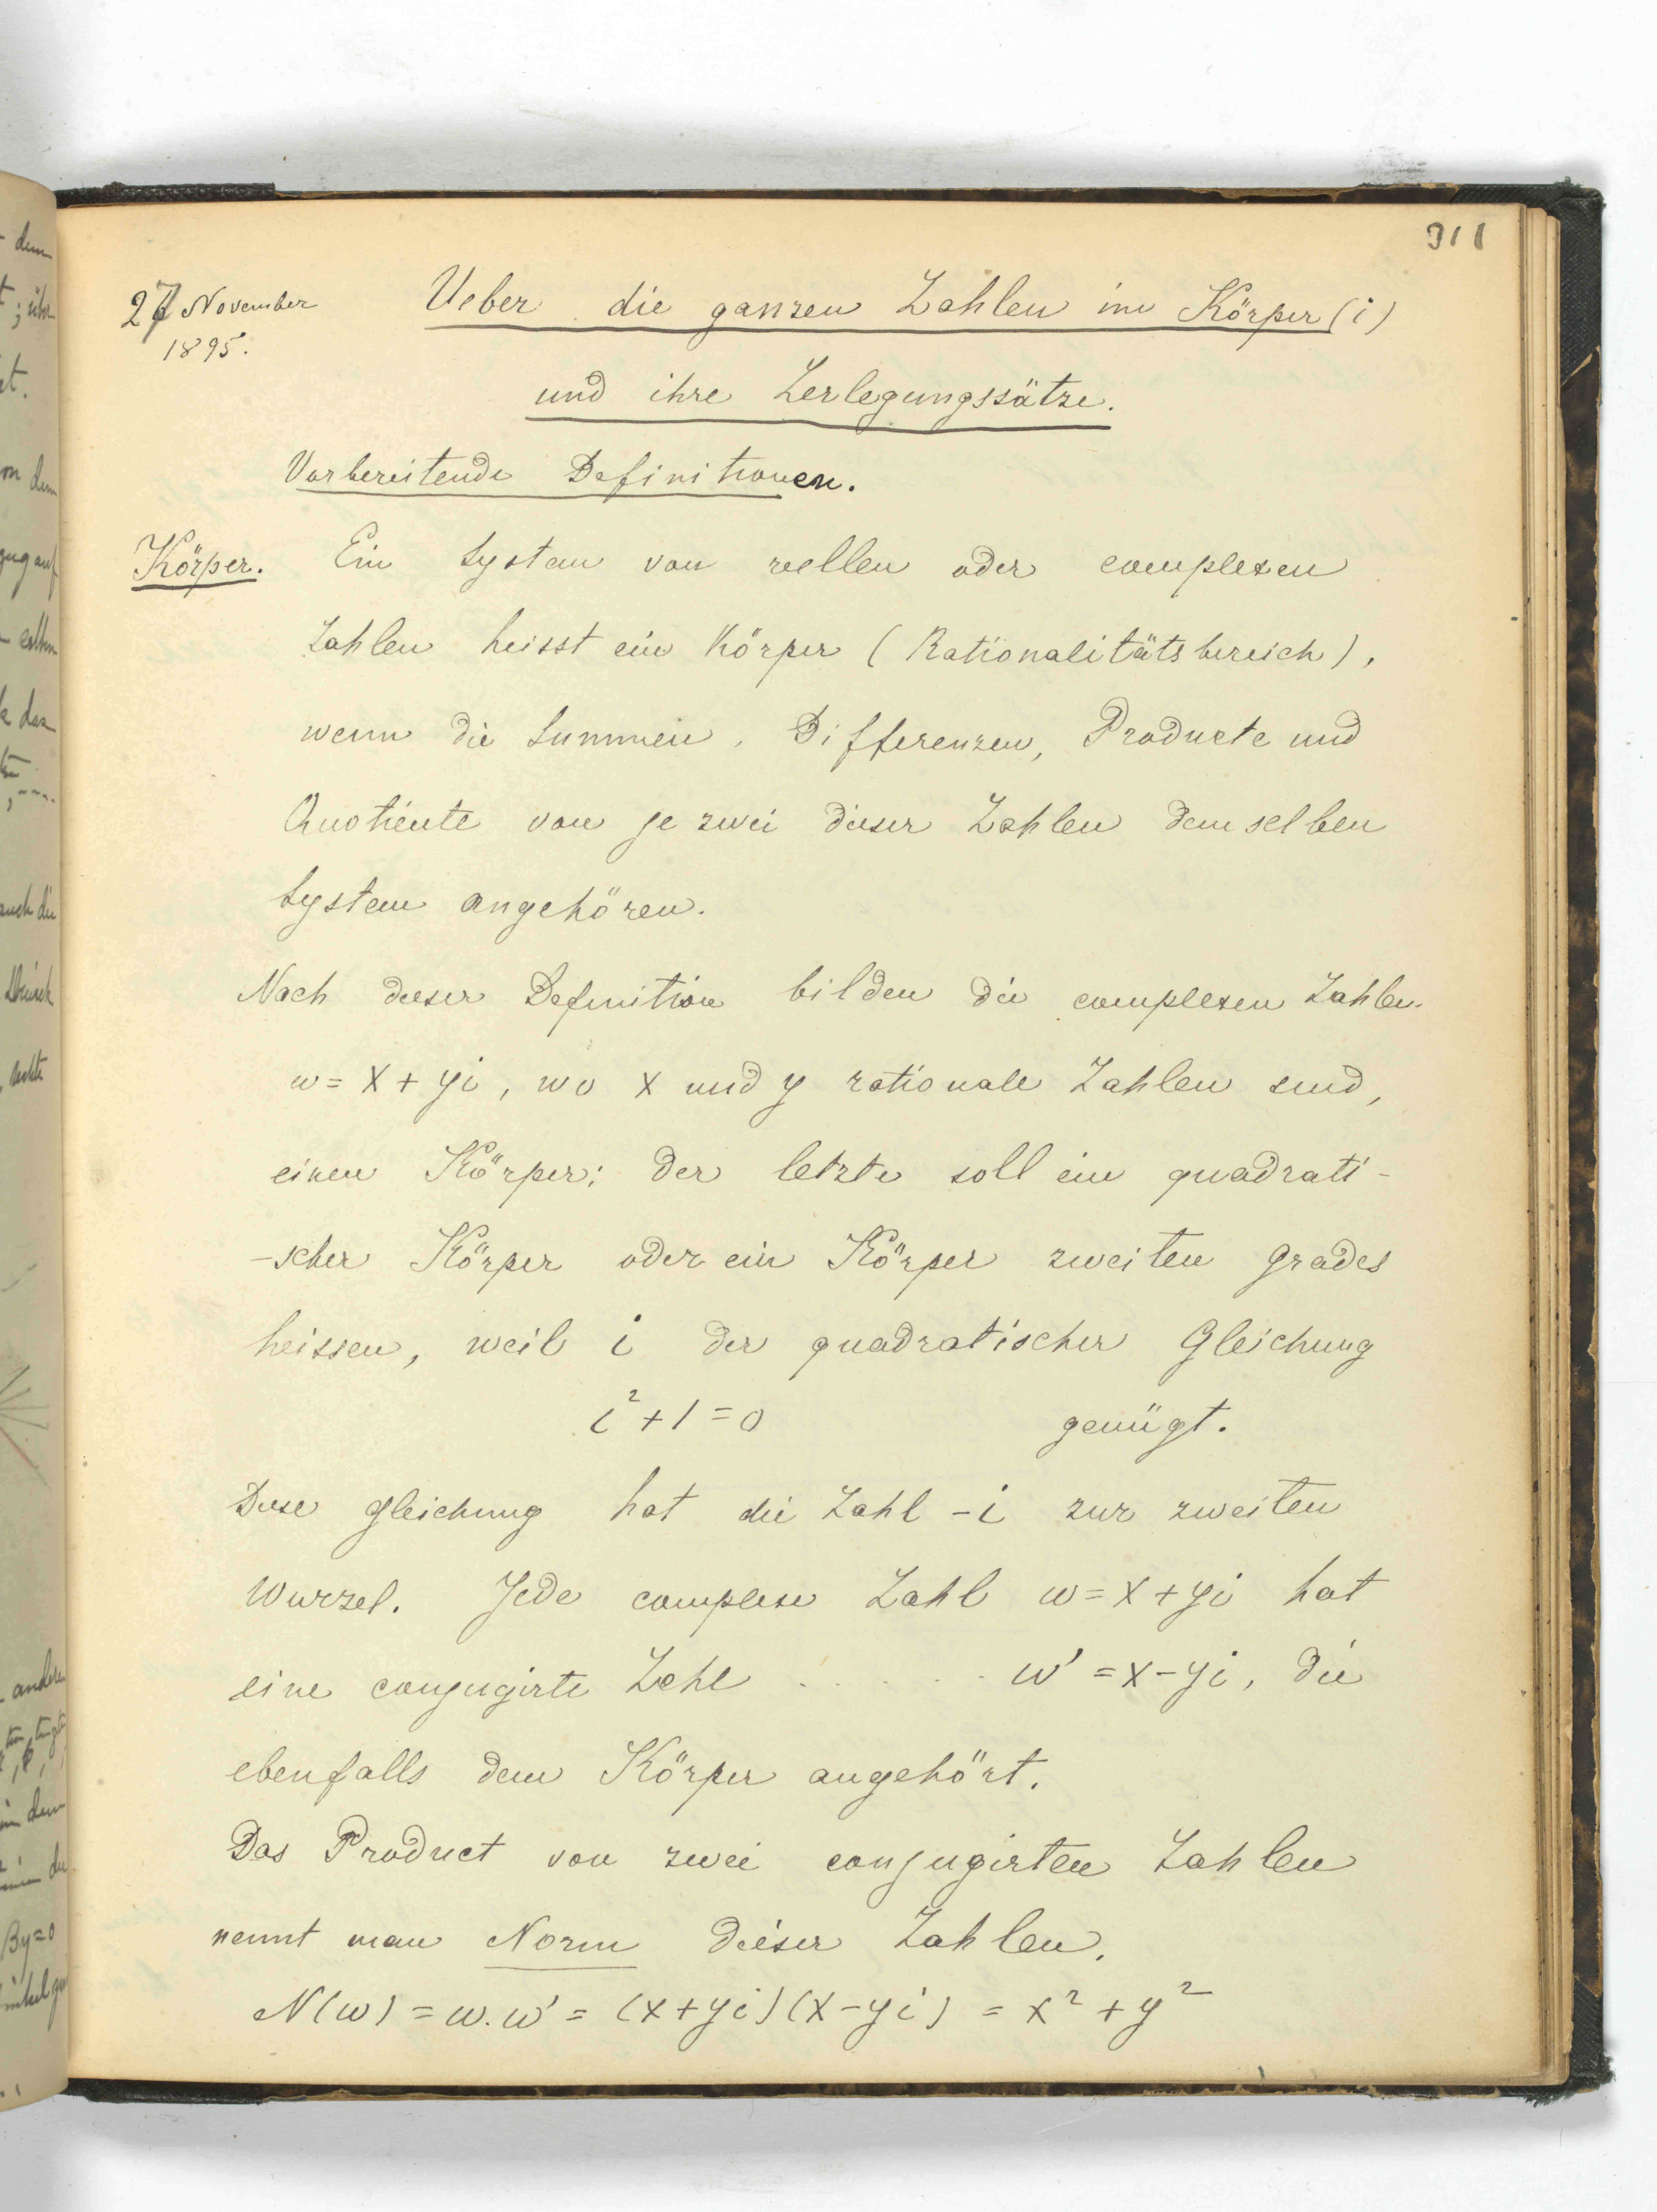 311
27 November
1895.
Ueber die ganzen Zahlen im Körper (i)
und ihre Zerlegungssätze.
Vorbereitende Definitionen.
Körper. Ein System von reellen oder complexen
Zahlen heisst ein Körper (Rationalitätsbereich),
wenn die Summen, Differenzen, Producte und
Quotiente von je zwei dieser Zahlen demselben
System angehören.
Nach dieser Definition bilden die complexen Zahlen
w = x + yi, wo x und y rationale Zahlen sind,
einen Körper; der letzte soll ein quadrati-
-scher Körper oder ein Körper zweiten Grades
heissen, weil i der quadratischer Gleichung
i² + 1 = 0 genügt.
Diese Gleichung hat die Zahl -i zur zweiten
Wurzel. Jede complexe Zahl w = x + yi hat
eine conjugirte Zahl . . . . . w' = x - yi, die
ebenfalls dem Körper angehört.
Das Product von zwei conjugirten Zahlen
nennt man Norm dieser Zahlen.
N(w) = w.w' = (x+yi)(x-yi) = x² + y²
dem
et.
on dem
zug auf
das
auch die
andere
in dem
By=0